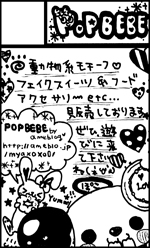 PoPBEBE
@動物系モチーフ♡
フェイクスイーツ/系フード
アクセサリーetc...
販売しております
POPBEBE
by
ameblog
http://ameblo.jp
/myakoxo0/
ぜひ遊
びに来
て下さい
Yum!!